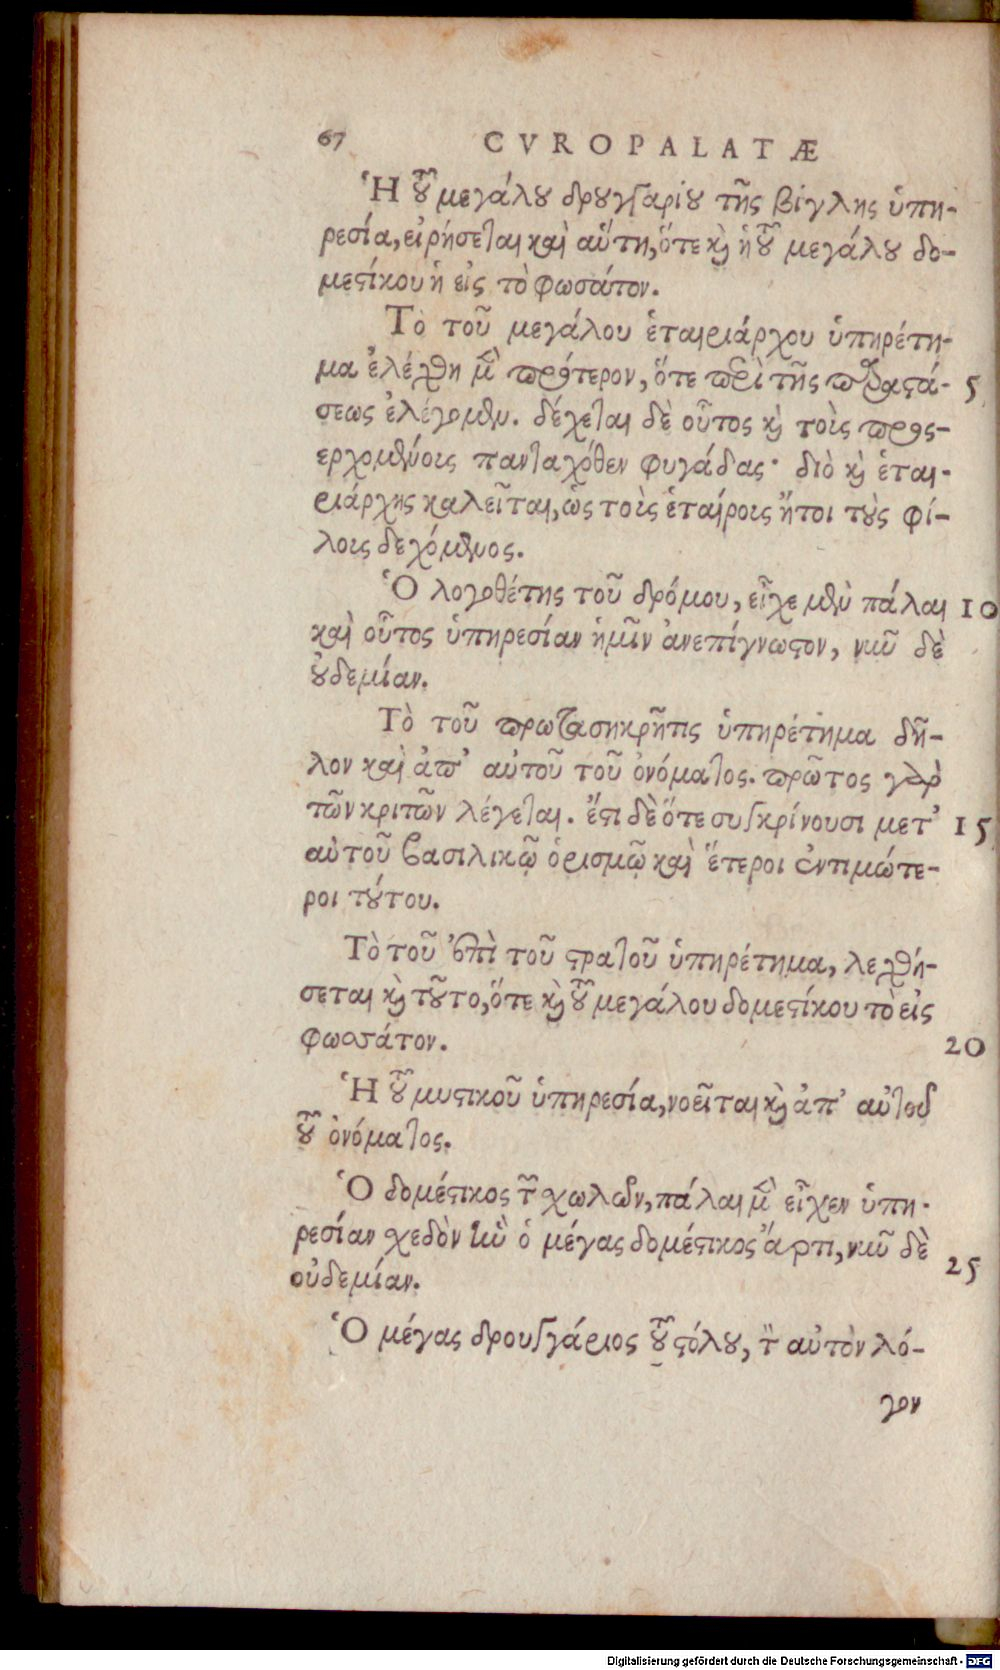 67 CVROPALATÆ
Ἡ τοῦ μεγάλου δρουγγαρίου τῆς βίγλης ὑπη-
ρεσία, εἰρήσεται καὶ αὕτη, ὅτε καὶ ἡ τοῦ μεγάλου δο-
μεστίκου ἡ εἰς τὸ φωσάτον.
Τὸ τοῦ μεγάλου ἑταιριάρχου ὑπηρέτη-
μα ἐλέχθη μὲν πρότερον, ὅτε περὶ τῆς παραστά- 5
σεως ἐλέγομεν. δέχεται δὲ οὗτος καὶ τοὺς προς-
ερχομένους πανταχόθεν φυγάδας· διὸ καὶ ἑται-
ριάρχης καλεῖται, ὡς τοὺς ἑταίρους ἤτοι τοὺς φί-
λους δεχόμενος.
Ὁ λογοθέτης τοῦ δρόμου, εἶχε μὲν πάλαι 10
καὶ οὗτος ὑπηρεσίαν ἡμῖν ἀνεπίγνωστον, νῦν δὲ
οὐδεμίαν.
Τὸ τοῦ πρωτασηκρῆτις ὑπηρέτημα δῆ-
λον καὶ ἀπ' αὐτοῦ τοῦ ὀνόματος. πρῶτος γὰρ
τῶν κριτῶν λέγεται. ἔστι δὲ ὅτε συγκρίνουσι μετ' 15
αὐτοῦ βασιλικῷ ὁρισμῷ καὶ ἕτεροι ἐντιμώτε-
ροι τούτου.
Τὸ τοῦ ἐπὶ τοῦ στρατοῦ ὑπηρέτημα, λεχθή-
σεται καὶ τοῦτο, ὅτε καὶ τοῦ μεγάλου δομεστίκου τὸ εἰς
φωσσάτον. 20
Ἡ τοῦ μυστικοῦ ὑπηρεσία, νοεῖται καὶ ἀπ' αὐτοῦ
τοῦ ὀνόματος.
Ὁ δομέστικος τῶν χωλῶν, πάλαι μὲν εἶχεν ὑπη-
ρεσίαν σχεδὸν ἣν ὁ μέγας δομέστικος ἄρτι, νῦν δὲ
οὐδεμίαν. 25
Ὁ μέγας δρουγγάριος τοῦ στόλου, τὸν αὐτὸν λό-
γον
Digitalisierung gefördert durch die Deutsche Forschungsgemeinschaft - DFG